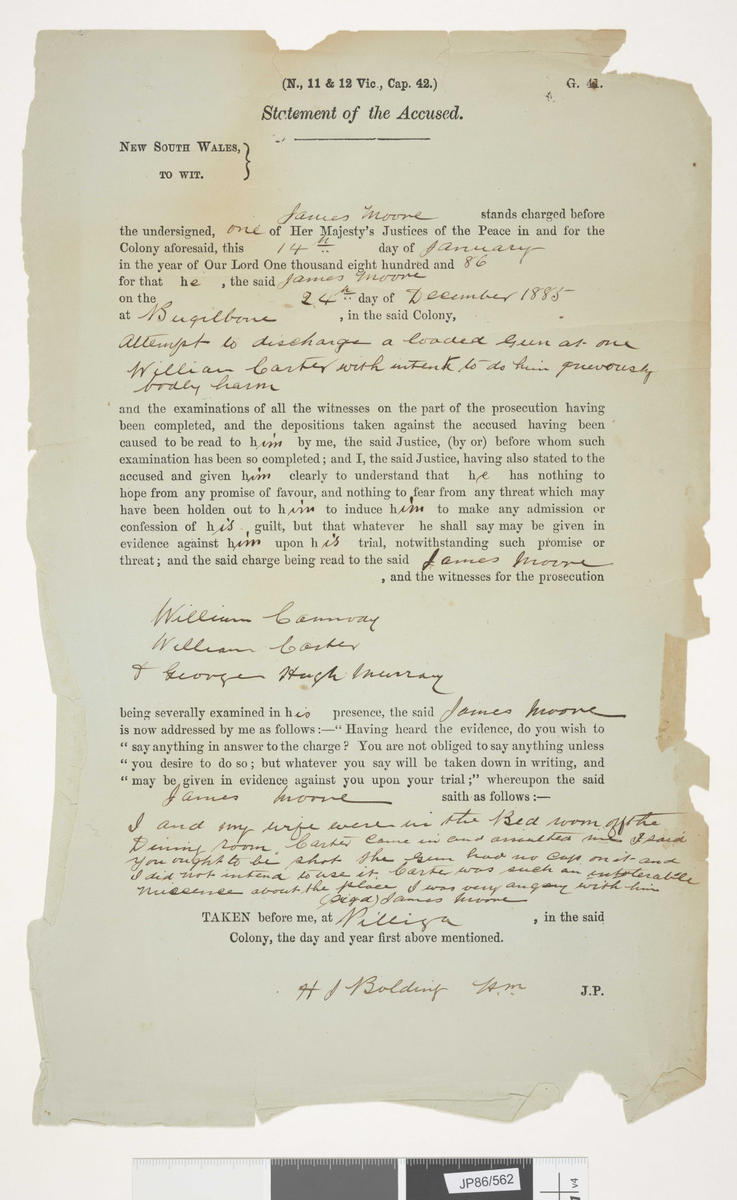 (N., 11 & 12 Vic., Cap. 42.) G. 41.
Statement of the Accused.
NEW SOUTH WALES, }
TO WIT.
James Moore stands charged before
the undersigned, one of Her Majesty's Justices of the Peace in and for the
Colony aforesaid, this 14th day of January
in the year of Our Lord One thousand eight hundred and 86
for that he , the said James Moore
on the 24th day of December 1885
at Bugilbone , in the said Colony,
Attempt to discharge a loaded Gun at one
William Carter with intent to do him grevously
bodly harm
and the examinations of all the witnesses on the part of the prosecution having
been completed, and the depositions taken against the accused having been
caused to be read to him by me, the said Justice, (by or) before whom such
examination has been so completed; and I, the said Justice, having also stated to the
accused and given him clearly to understand that he has nothing to
hope from any promise of favour, and nothing to fear from any threat which may
have been holden out to him to induce him to make any admission or
confession of his guilt, but that whatever he shall say may be given in
evidence against him upon his trial, notwithstanding such promise or
threat; and the said charge being read to the said James Moore
, and the witnesses for the prosecution
William Cannody
William Carter
& George Hugh Murray
being severally examined in his presence, the said James Moore
is now addressed by me as follows:—"Having heard the evidence, do you wish to
"say anything in answer to the charge? You are not obliged to say anything unless
"you desire to do so; but whatever you say will be taken down in writing, and
"may be given in evidence against you upon your trial;" whereupon the said
James Moore saith as follows:—
I and my wife were in the Bed room off the
Dining room. Carter came in and assulted me I said
you ought to be shot the Gun had no cap on it and
I did not intend to use it. Carter was such an intolerable
nuissence about the place I was very angry with him
(Sigd) James Moore
TAKEN before me, at Pilliga , in the said
Colony, the day and year first above mentioned.
H J Bolding P.M. J.P.
JP86/562
V4